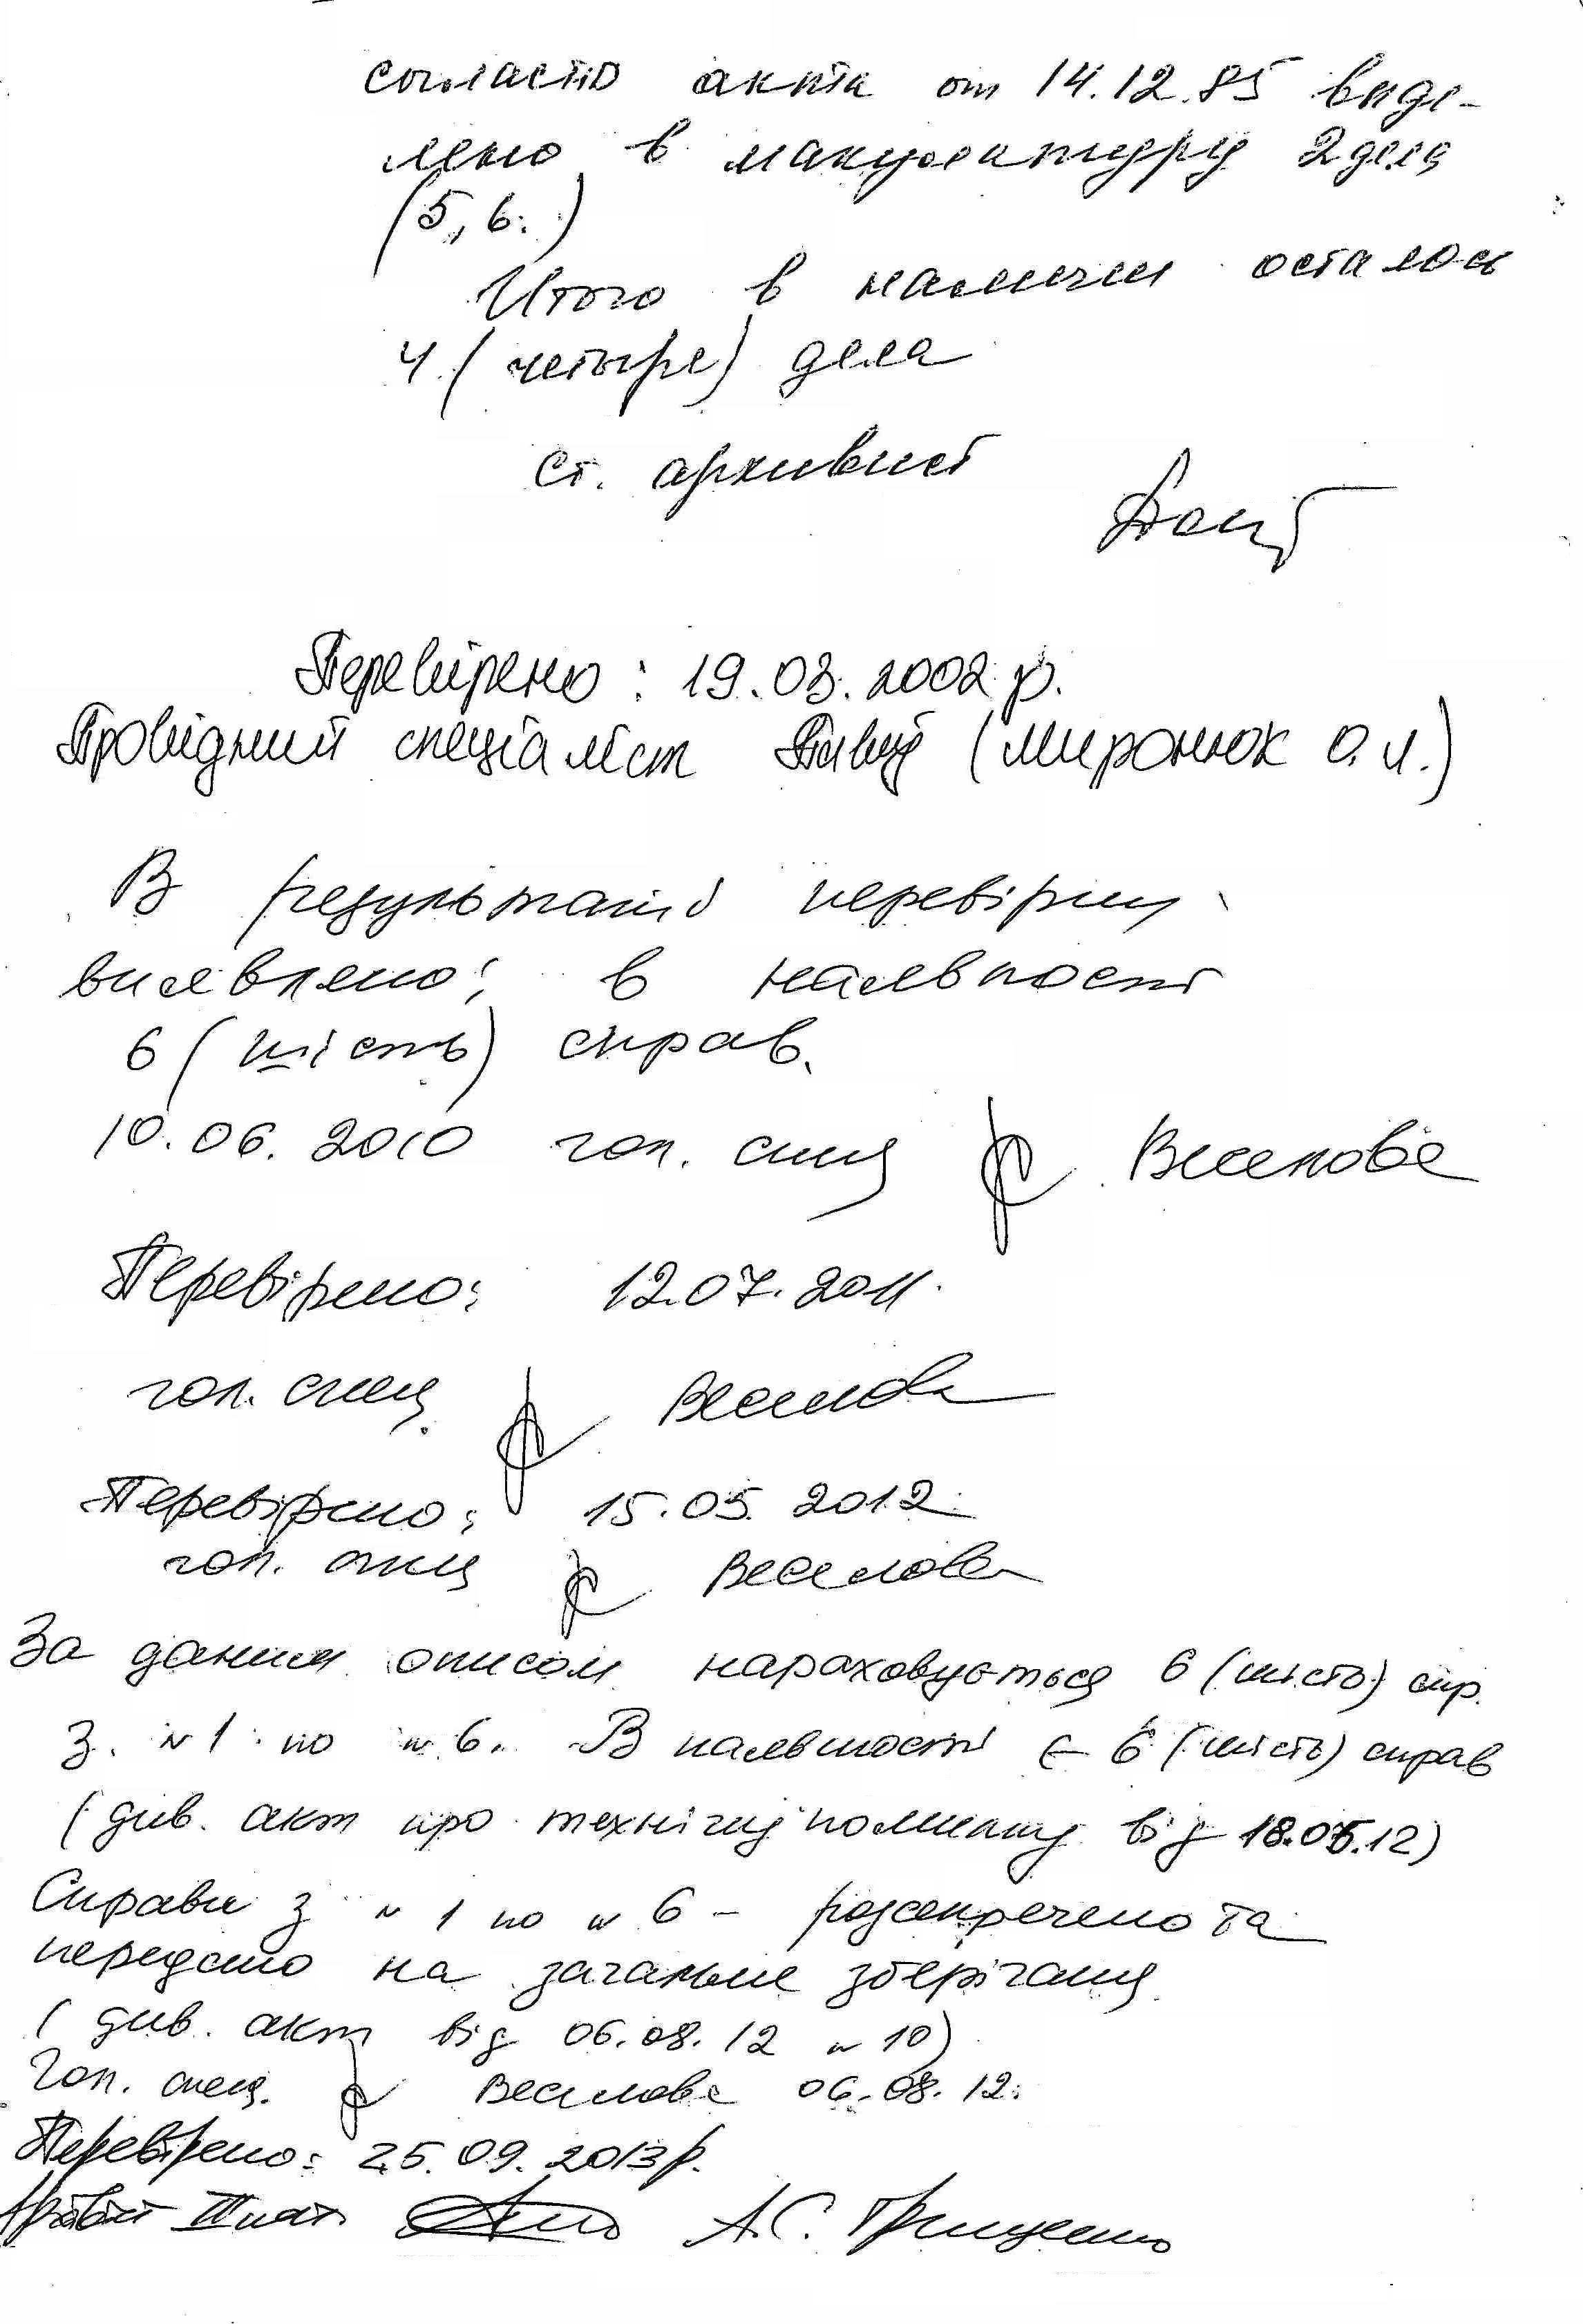 согластно акта от 14.12.85 виде-
лено в макулатуру 2 дела
(5, 6.)
Итого в наличии осталось
4 (четыре) дела
ст. архивист
Перевірено: 19.03.2002 р.
Провідний спеціаліст (Миронюк О.И.)
В результаті перевірки
виявлено: в наявності
6 (шість) справ.
10.06.2010 гол. спец Веселова
Перевірено: 12.07.2011.
гол. спец. Веселова
Перевірено: 15.05.2012.
гол. спец Веселова
За даним описом нараховується 6 (шість) спр.
з № 1 по № 6. В наявності є 6 (шість) справ
(див. акт про технічну помилку від 18.05.12)
Справи з № 1 по № 6 - розсекречено та
передано на загальне зберігання
(див. акт від 06.08.12 № 10)
Гол. спец. Веселова 06.08.12.
Перевірено: 25.09.2013 р.
Архівіст II кат. А.С. Грищенко